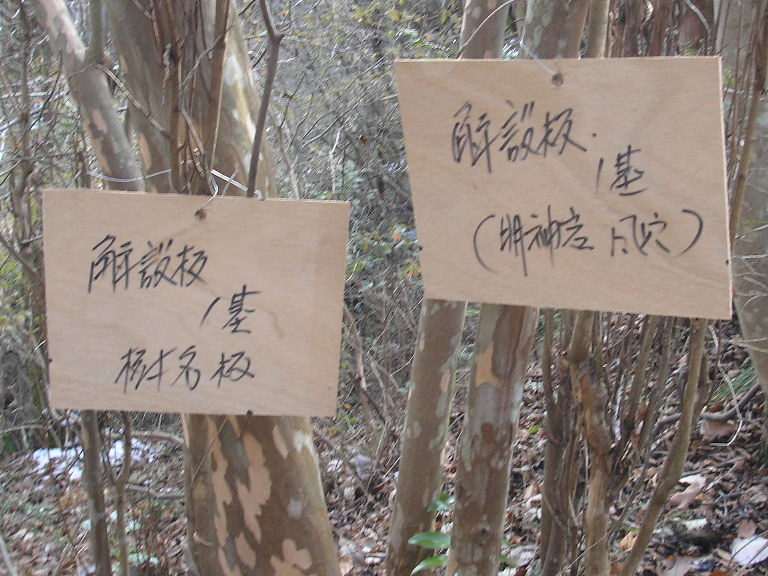 解設板
1基
樹名板
解設板.
1基
(明神岩 風穴)